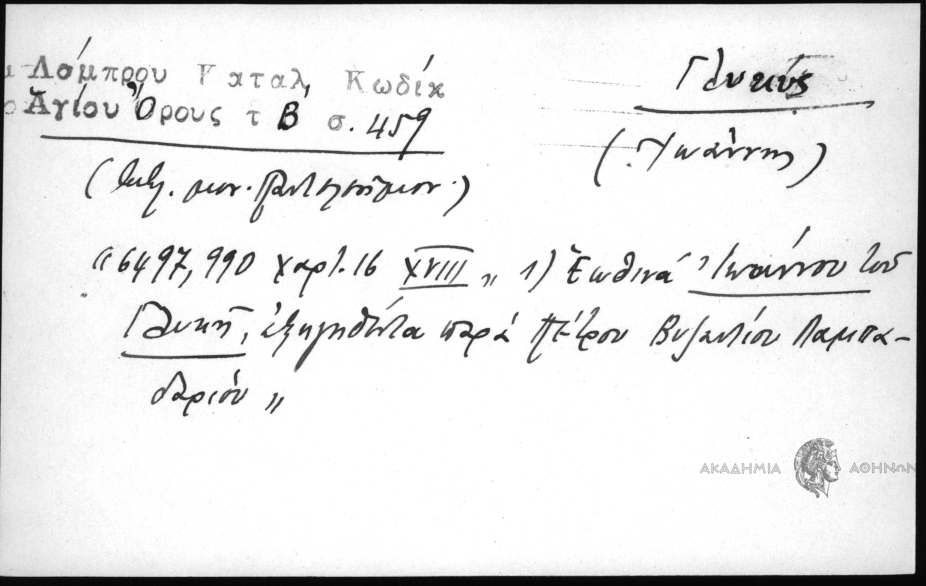 Λάμπρου Καταλ, Κωδίκ
Ἁγίου Ὄρους τ Β σ. 459
Γλυκύς
(Ἰωάννης)
(βιβλ. μον. Παντελεήμον.)
“6497,990 χαρτ. 16 XVIII „ 1) Ἑωθινά Ἰωάννου τοῦ
Γλυκῆ, ἐξηγηθέντα παρά Πέτρου Βυζαντίου Λαμπα-
δαρίου „
ΑΚΑΔΗΜΙΑ ΑΘΗΝΩΝ